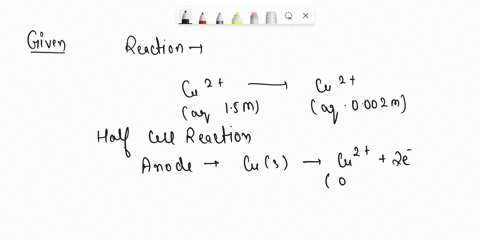 Given Reaction →
Cu²⁺ ⟶ Cu²⁺
(aq 1.5M) (aq. 0.002m)
Half Cell Reaction
Anode → Cu(s) → Cu²⁺ + 2e⁻
(0